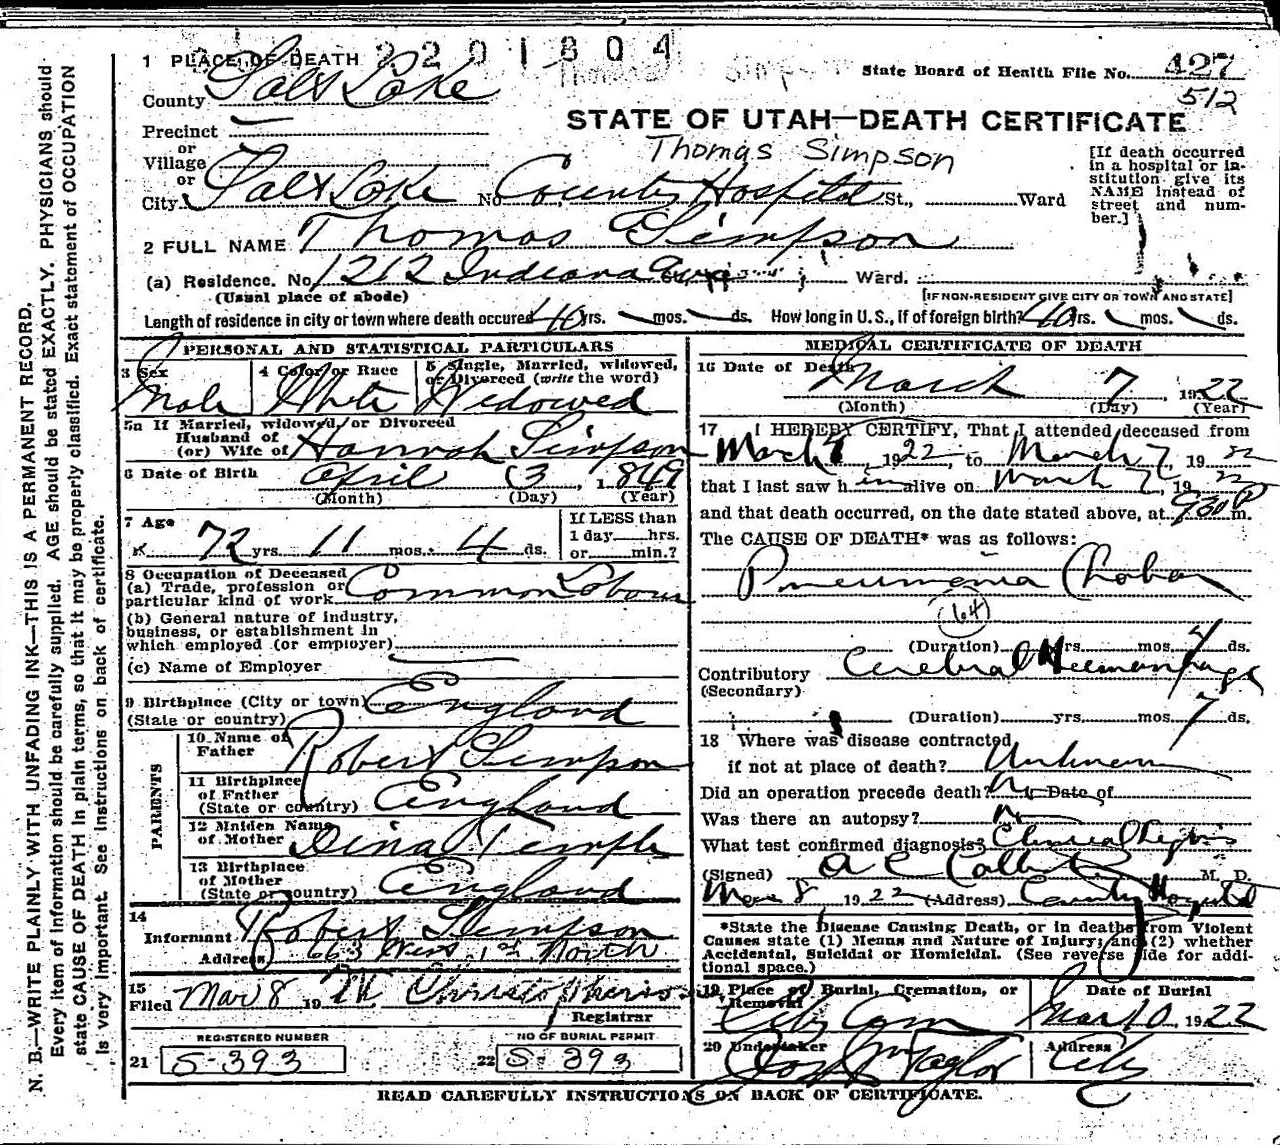 2201804
1 PLACE OF DEATH
State Board of Health File No. 427
512
County Salt Lake
STATE OF UTAH—DEATH CERTIFICATE
Thomas Simpson
Precinct
or
Village
or
City Salt Lake No. County Hospital St., Ward
[If death occurred
in a hospital or in-
stitution give its
NAME instead of
street and num-
ber.]
2 FULL NAME Thomas Simpson
(a) Residence. No. 1212 Indiana Ave Ward.
(Usual place of abode)
[IF NON-RESIDENT GIVE CITY OR TOWN AND STATE]
Length of residence in city or town where death occured 40 yrs. mos. ds. How long in U. S., if of foreign birth? 40 yrs. mos. ds.
PERSONAL AND STATISTICAL PARTICULARS
3 Sex
Male
4 Color or Race
White
5 Single, Married, widowed,
or Divorced (write the word)
Widowed
5a If Married, widowed, or Divorced
Husband of
(or) Wife of Hannah Simpson
6 Date of Birth April 3, 1849
(Month) (Day) (Year)
7 Age
72 yrs. 11 mos. 4 ds.
If LESS than
1 day hrs.
or min.?
8 Occupation of Deceased
(a) Trade, profession or
particular kind of work Common Labour
(b) General nature of industry,
business, or establishment in
which employed (or employer)
(c) Name of Employer
9 Birthplace (City or town)
(State or country) England
PARENTS
10 Name of
Father Robert Simpson
11 Birthplace
of Father
(State or country) England
12 Maiden Name
of Mother Dina Temple
13 Birthplace
of Mother
(State or country) England
14
Informant Robert Simpson
Address 663 West 1st North
15
Filed Mar 8 19
Registrar
REGISTERED NUMBER
21 S-393
NO OF BURIAL PERMIT
22 S-393
MEDICAL CERTIFICATE OF DEATH
16 Date of Death
March 7, 1922
(Month) (Day) (Year)
17 I HEREBY CERTIFY, That I attended deceased from
March 1922, to March 7, 1922
that I last saw him alive on March 7, 1922
and that death occurred, on the date stated above, at 930 P m.
The CAUSE OF DEATH* was as follows:
Pneumonia
(64)
(Duration) yrs. mos. ds.
Contributory Cerebral Hemorrhage
(Secondary)
(Duration) yrs. mos. 7 ds.
18 Where was disease contracted
if not at place of death? Unknown
Did an operation precede death? No Date of
Was there an autopsy? No
What test confirmed diagnosis? Clinical
(Signed) A C M. D.
Mar 8, 1922 (Address) County Hospital
*State the Disease Causing Death, or in deaths from Violent
Causes state (1) Means and Nature of Injury; and (2) whether
Accidental, Suicidal or Homicidal. (See reverse side for addi-
tional space.)
19 Place of Burial, Cremation, or
Removal
City Cem
Date of Burial
Mar 10, 1922
20 Undertaker
Jos Wm Taylor
Address
City
READ CAREFULLY INSTRUCTIONS ON BACK OF CERTIFICATE.
N. B.—WRITE PLAINLY WITH UNFADING INK—THIS IS A PERMANENT RECORD.
Every item of information should be carefully supplied. AGE should be stated EXACTLY. PHYSICIANS should
state CAUSE OF DEATH in plain terms, so that it may be properly classified. Exact statement of OCCUPATION
is very important. See instructions on back of certificate.